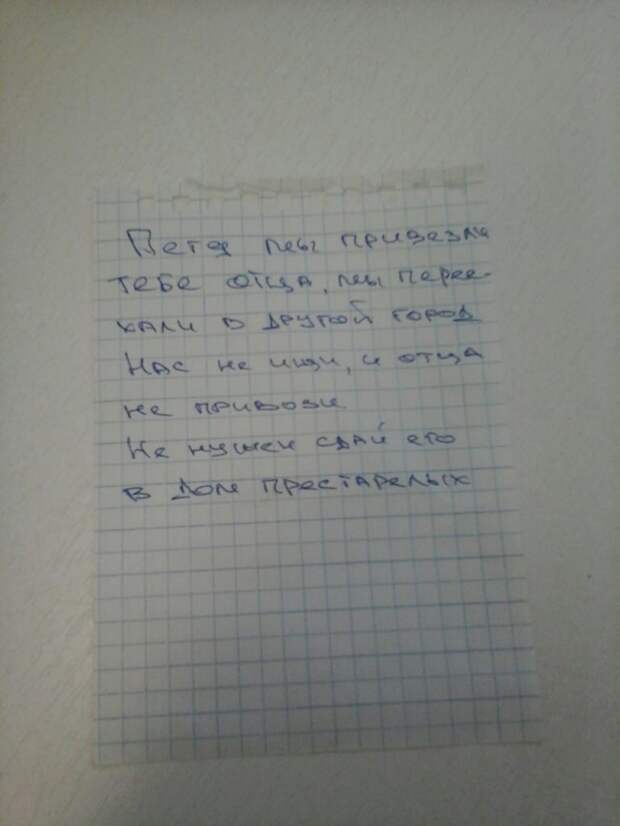 Петя мы привезли
тебе отца, мы перее-
хали в другой город
Нас не ищи, и отца
не привози
Не нужен сдай его
в дом престарелых